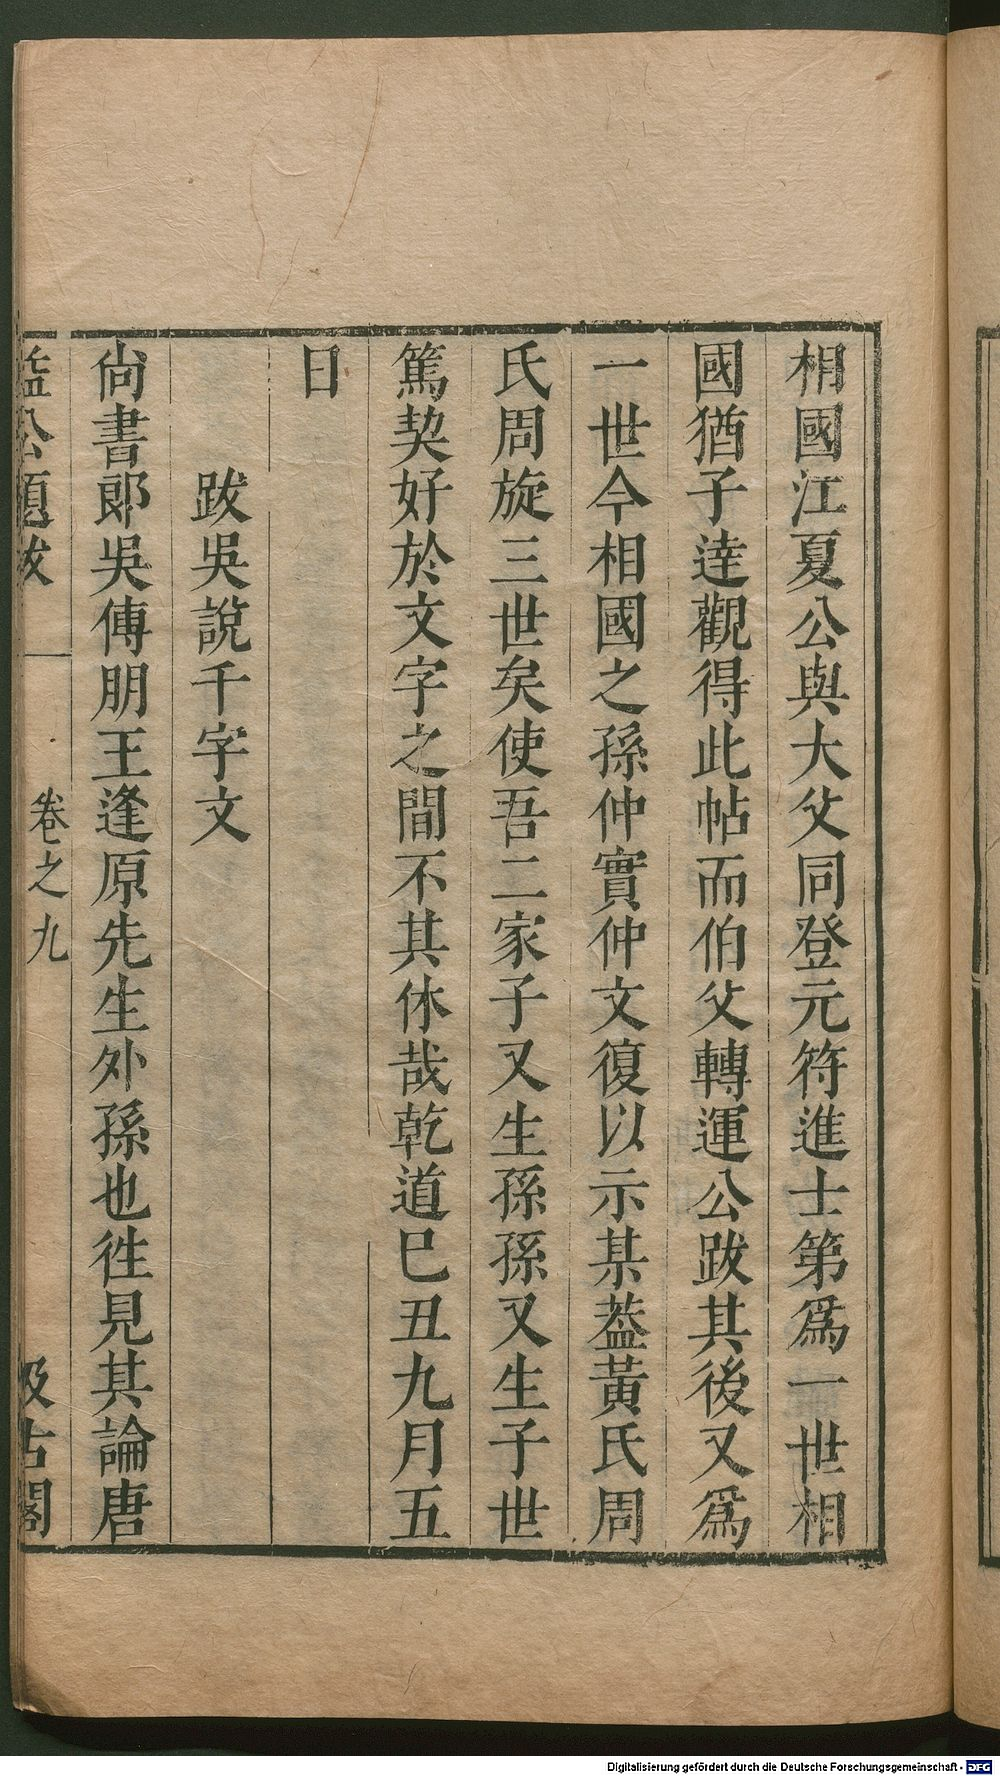 相國江夏公與大父同登元符進士第爲一世相
國猶子逹觀得此帖而伯父轉運公跋其後又爲
一世今相國之孫仲實仲文復以示某葢黃氏周
氏周旋三世矣使吾二家子又生孫孫又生子世
篤契好於文字之間不其休哉乾道巳丑九月五
日
跋吳說千字文
尙書郞吳傅朋王逢原先生外孫也徃見其論唐
益公題跋
卷之九
汲古閣
Digitalisierung gefördert durch die Deutsche Forschungsgemeinschaft - DFG